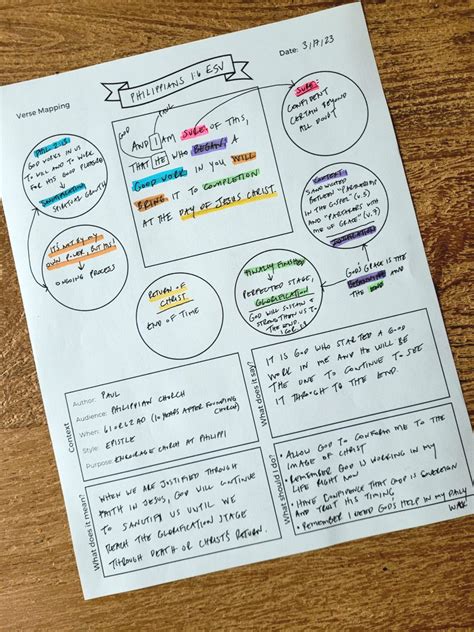 Date: 3/17/23
Verse Mapping
PHILIPPIANS 1:6 ESV
GOD
PAUL
AND I AM SURE OF THIS,
THAT HE WHO BEGAN A
GOOD WORK IN YOU WILL
BRING IT TO COMPLETION
AT THE DAY OF JESUS CHRIST.
SURE:
CONFIDENT
CERTAIN BEYOND
ALL DOUBT
PHIL 2:13
GOD WORKS IN US
TO WILL AND TO WORK
FOR HIS GOOD PLEASURE
SANCTIFICATION
SPIRITUAL GROWTH
IT'S NOT BY MY
OWN POWER, BUT HIS!
ONGOING PROCESS
RETURN OF
CHRIST
END OF TIME
FINALLY FINISHED
PERFECTED STAGE,
GLORIFICATION
GOD WILL SUSTAIN &
STRENGTHEN US TO
THE END.
1 COR 1:8
CONTEXT:
SANDWICHED
BETWEEN "PARTNERSHIP
IN THE GOSPEL" (V.5)
AND "PARTAKERS WITH
ME OF GRACE" (V.7)
GOD'S GRACE IS THE
BEGINNING AND
THE END
Context
Author: PAUL
Audience: PHILIPPIAN CHURCH
When: 61 OR 62 AD (10 YEARS AFTER FOUNDING
CHURCH)
Style: EPISTLE
Purpose: ENCOURAGE CHURCH AT PHILIPPI
What does it say?
IT IS GOD WHO STARTED A GOOD
WORK IN ME AND HE WILL BE
THE ONE TO CONTINUE TO SEE
IT THROUGH TO THE END.
What does it mean?
WHEN WE ARE JUSTIFIED THROUGH
FAITH IN JESUS, GOD WILL CONTINUE
TO SANCTIFY US UNTIL WE
REACH THE GLORIFICATION STAGE
THROUGH DEATH OR CHRIST'S RETURN.
What should I do?
• ALLOW GOD TO CONFORM ME TO THE
IMAGE OF CHRIST
• REMEMBER GOD IS WORKING IN MY
LIFE RIGHT NOW
• HAVE CONFIDENCE THAT GOD IS SOVEREIGN
AND TRUST HIS TIMING.
• REMEMBER I NEED GOD'S HELP IN MY DAILY
WALK